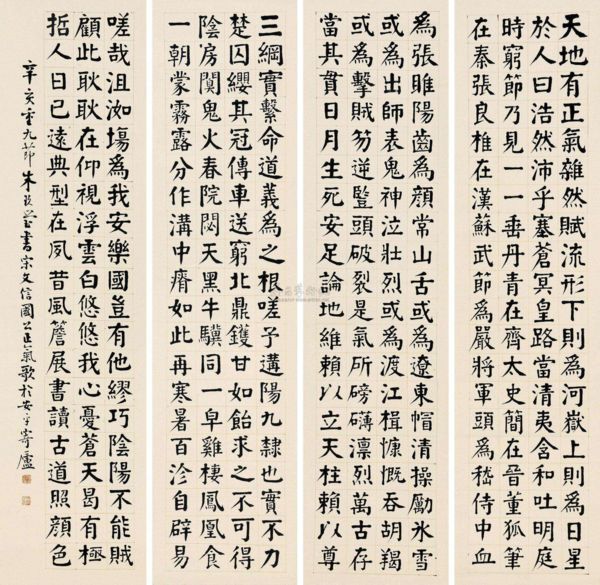 天地有正氣雜然賦流形下則爲河嶽上則爲日星
於人曰浩然沛乎塞蒼冥皇路當清夷含和吐明庭
時窮節乃見一一垂丹青在齊太史簡在晉董狐筆
在秦張良椎在漢蘇武節爲嚴將軍頭爲嵇侍中血
爲張睢陽齒爲顏常山舌或爲遼東帽清操勵氷雪
或爲出師表鬼神泣壯烈或爲渡江楫慷慨吞胡羯
或爲擊賊笏逆豎頭破裂是氣所磅礴凜烈萬古存
當其貫日月生死安足論地維賴以立天柱賴以尊
三綱實繫命道義爲之根嗟予遘陽九隸也實不力
楚囚纓其冠傳車送窮北鼎鑊甘如飴求之不可得
陰房闃鬼火春院閟天黑牛驥同一皁雞棲鳳凰食
一朝蒙霧露分作溝中瘠如此再寒暑百沴自辟易
嗟哉沮洳場爲我安樂國豈有他繆巧陰陽不能賊
顧此耿耿在仰視浮雲白悠悠我心憂蒼天曷有極
哲人日已遠典型在夙昔風簷展書讀古道照顏色
辛亥重九節朱玖瑩書宋文信國公正氣歌於安平寄廬